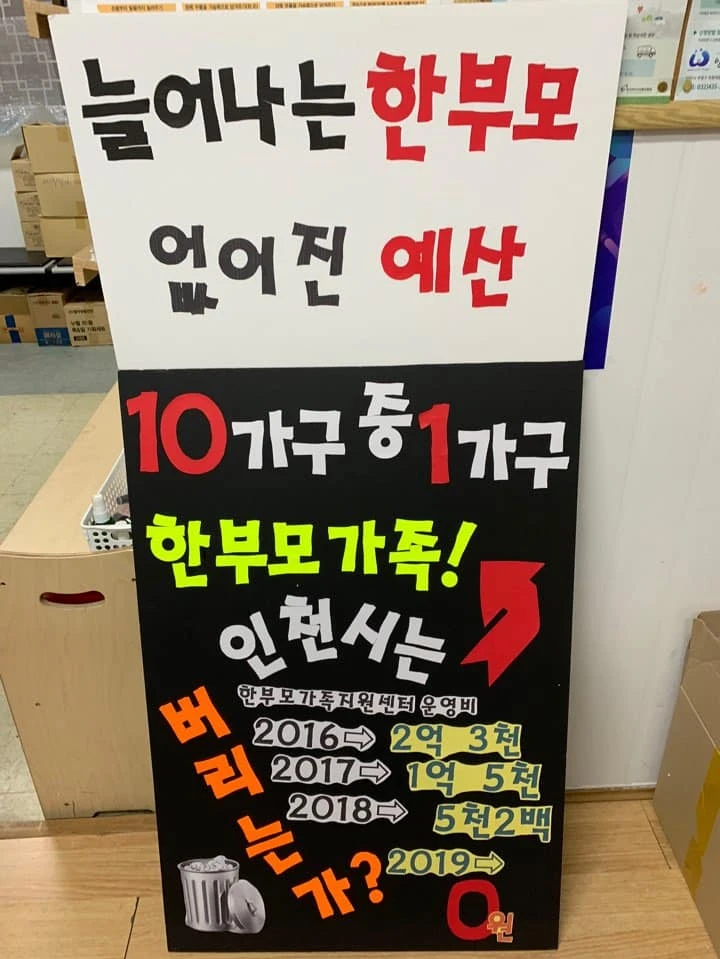 늘어나는 한부모
없어진 예산
10가구 중 1가구
한부모가족!
인천시는
버리는가?
한부모가족지원센터 운영비
2016⇨ 2억 3천
2017⇨ 1억 5천
2018⇨ 5천2백
2019⇨
0원